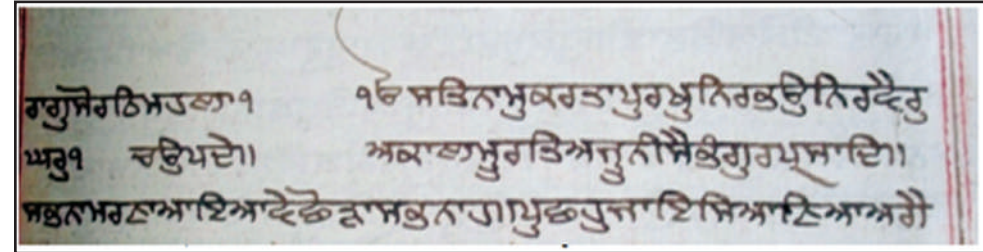 ਰਾਗੁਸੋਰਠਿਮਹਲਾ੧ ੴ ਸਤਿਨਾਮੁਕਰਤਾਪੁਰਖੁਨਿਰਭਉਨਿਰਵੈਰੁ
ਘਰੁ੧ ਚਉਪਦੇ॥ ਅਕਾਲਮੂਰਤਿਅਜੂਨੀਸੈਭੰਗੁਰਪ੍ਰਸਾਦਿ॥
ਸਭਨਾਮਰਣਾਆਇਆਵੇਛੋੜਾਸਭਨਾਹ॥ਪੁਛਹੁਜਾਇਸਿਆਣਿਆਅਗੈ